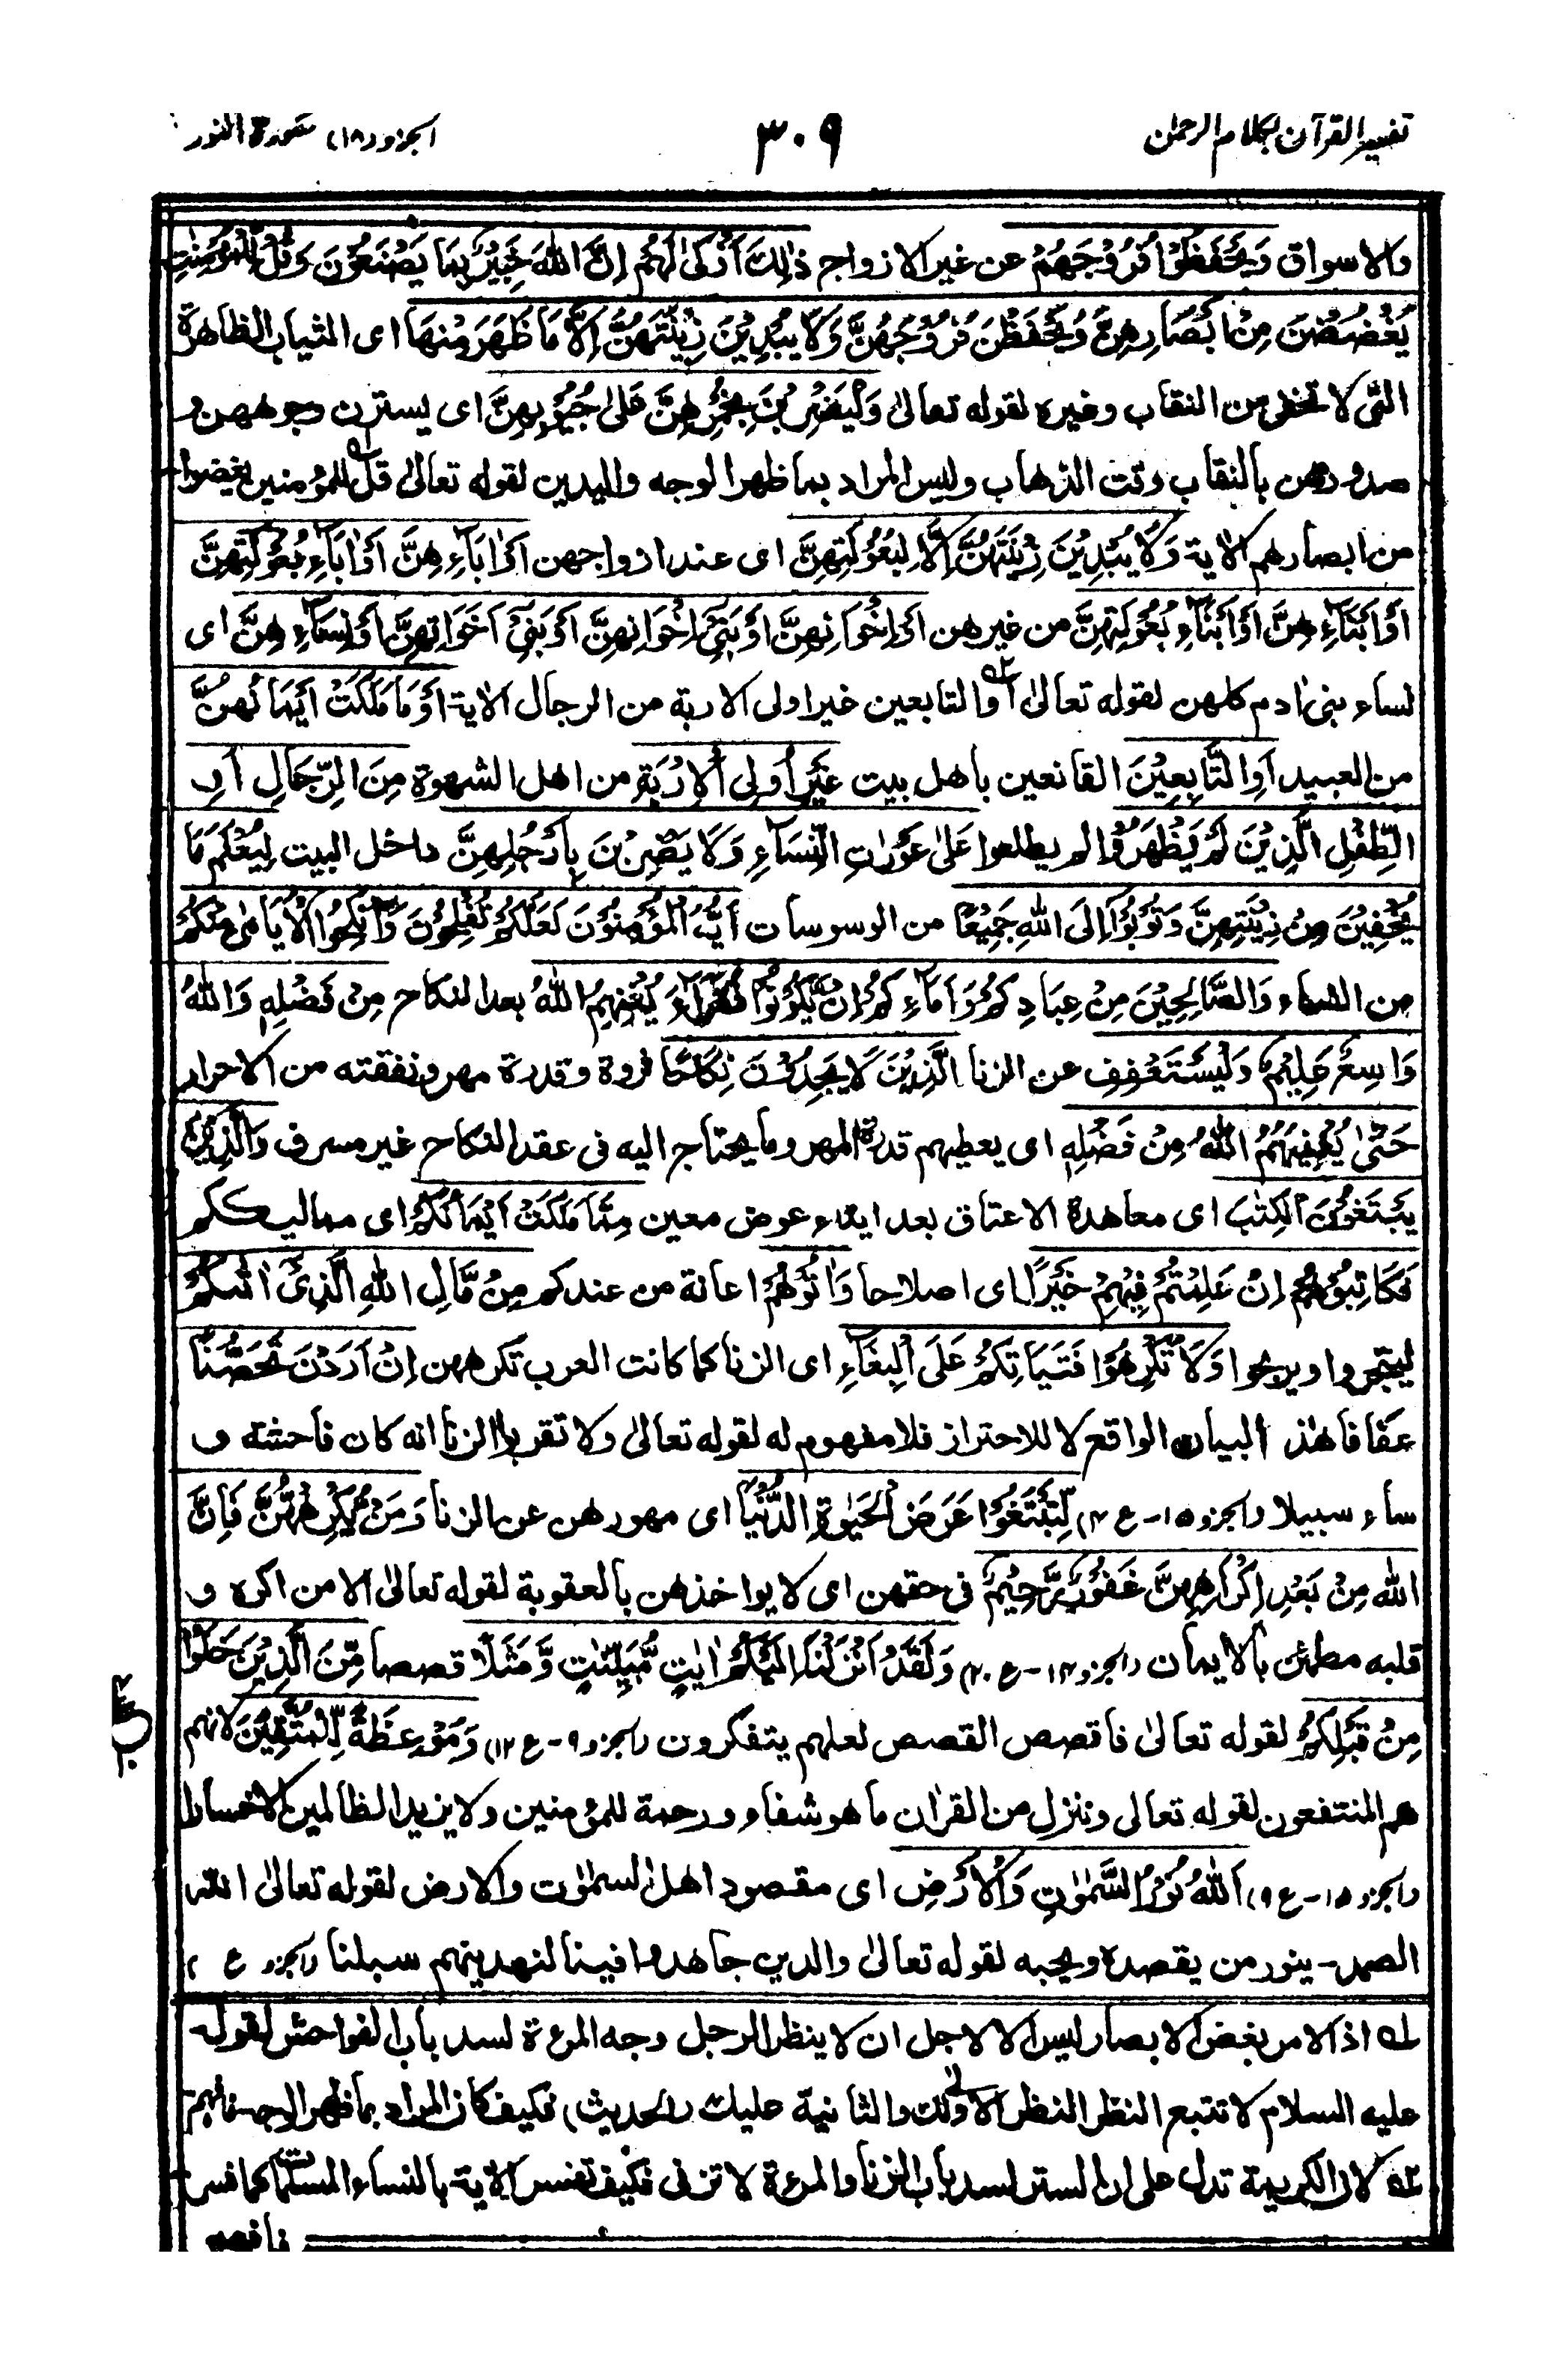 تفسير القرآن بكلام الرحمٰن
٣٠٩
الجزو (١٨) سورة النور
والاسواق وَيَحْفَظُوْا فُرُوْجَهُمْ عن غير الازواج ذٰلِكَ اَزْكٰى لَهُمْ اِنَّ اللّٰهَ خَبِيْرٌۢ بِمَا يَصْنَعُوْنَ وَقُلْ لِّلْمُؤْمِنٰتِ
يَغْضُضْنَ مِنْ اَبْصَارِهِنَّ وَيَحْفَظْنَ فُرُوْجَهُنَّ وَلَا يُبْدِيْنَ زِيْنَتَهُنَّ اِلَّا مَا ظَهَرَ مِنْهَا اى الثياب الظاهرة
التى لا تخفى من النقاب وغيره لقوله تعالىٰ وَلْيَضْرِبْنَ بِخُمُرِهِنَّ عَلٰى جُيُوْبِهِنَّ اى يسترن وجوههن و
صدورهن بالنقاب وقت الذهاب وليس المراد بما ظهر الوجه واليدين لقوله تعالىٰ قل له للمؤمنين يغضوا
من ابصارهم الاية وَلَا يُبْدِيْنَ زِيْنَتَهُنَّ اِلَّا لِبُعُوْلَتِهِنَّ اى عند ازواجهن اَوْ اٰبَآءِ هِنَّ اَوْ اٰبَآءِ بُعُوْلَتِهِنَّ
اَوْ اَبْنَآءِ هِنَّ اَوْ اَبْنَآءِ بُعُوْلَتِهِنَّ من غيرهن اَوْ اِخْوَانِهِنَّ اَوْ بَنِىْٓ اِخْوَانِهِنَّ اَوْ بَنِىْٓ اَخَوَاتِهِنَّ اَوْ نِسَآءِ هِنَّ اى
نساء بنى اٰدم كلهن لقوله تعالىٰ ٢ه اوالتابعين غير اولى الاربة من الرجال الاية اَوْ مَا مَلَكَتْ اَيْمَانُهُنَّ
من العبيد اَوِ التَّابِعِيْنَ القانعين باهل بيت غَيْرِ اُولِى الْاِرْبَةِ من اهل الشهوة مِنَ الرِّجَالِ اَوِ
الطِّفْلِ الَّذِيْنَ لَمْ يَظْهَرُوْا لم يطلعوا عَلٰى عَوْرَاتِ النِّسَآءِ وَلَا يَضْرِبْنَ بِاَرْجُلِهِنَّ داخل البيت لِيُعْلَمَ مَا
يُخْفِيْنَ مِنْ زِيْنَتِهِنَّ وَتُوْبُوْٓا اِلَى اللّٰهِ جَمِيْعًا من الوسوسات اَيُّهَ الْمُؤْمِنُوْنَ لَعَلَّكُمْ تُفْلِحُوْنَ وَاَنْكِحُوا الْاَيَامٰى مِنْكُمْ
من النساء وَالصَّالِحِيْنَ مِنْ عِبَادِكُمْ وَاِمَآءِ كُمْ اِنْ يَّكُوْنُوْا فُقَرَآءَ يُغْنِهِمُ اللّٰهُ بعد النكاح مِنْ فَضْلِهٖ وَاللّٰهُ
وَاسِعٌ عَلِيْمٌ وَلْيَسْتَعْفِفِ عن الزنا الَّذِيْنَ لَا يَجِدُوْنَ نِكَاحًا ثروة وقدرة مهر ونفقته من الاحرار
حَتّٰى يُغْنِيَهُمُ اللّٰهُ مِنْ فَضْلِهٖ اى يعطيهم قدرة المهر وما يحتاج اليه فى عقد النكاح غير مسرف وَالَّذِيْنَ
يَبْتَغُوْنَ الْكِتٰبَ اى معاهدة الاعتاق بعد ايتاء عوض معين مِمَّا مَلَكَتْ اَيْمَانُكُمْ اى مماليككم
فَكَاتِبُوْهُمْ اِنْ عَلِمْتُمْ فِيْهِمْ خَيْرًا اى اصلاحا وَاٰتُوْهُمْ اعانة من عندكم مِنْ مَّالِ اللّٰهِ الَّذِىْٓ اٰتٰىكُمْ
ليتجروا ويربحوا وَلَا تُكْرِهُوْا فَتَيَاتِكُمْ عَلَى الْبِغَآءِ اى الزنا كما كانت العرب تكرههن اِنْ اَرَدْنَ تَحَصُّنًا
عفافا هذا البيان الواقع لا للاحتراز فلا مفهوم له لقوله تعالىٰ ولا تقربوا الزنا انه كان فاحشة و
ساء سبيلا (الجزو ١٥- ع ٣) لِّتَبْتَغُوْا عَرَضَ الْحَيٰوةِ الدُّنْيَا اى مهورهن عن الزنا وَمَنْ يُّكْرِهْهُّنَّ فَاِنَّ
اللّٰه مِنْ بَعْدِ اِكْرَاهِهِنَّ غَفُوْرٌ رَّحِيْمٌ فى حقهن اى لا يواخذهن بالعقوبة لقوله تعالىٰ الا من اكره و
قلبه مطمئن بالايمان (الجزو ١٤- ع ٢٠) وَلَقَدْ اَنْزَلْنَا اِلَيْكُمْ اٰيٰتٍ مُّبَيِّنٰتٍ وَّمَثَلًا قصصا مِّنَ الَّذِيْنَ خَلَوْا
مِنْ قَبْلِكُمْ لقوله تعالىٰ فاقصص القصص لعلهم يتفكرون (الجزو ٩- ع ١٢) وَمَوْعِظَةً لِّلْمُتَّقِيْنَ لانهم
هم المنتفعون لقوله تعالى وننزل من القراٰن ما هو شفاء ورحمة للمؤمنين ولا يزيد الظالمين الا خسارا
(الجزو ١٥- ع ٩) اَللّٰهُ نُوْرُ السَّمٰوٰتِ وَالْاَرْضِ اى مقصود اهل السمٰوٰت والارض لقوله تعالىٰ اللّٰه
الصمد- ينور من يقصده ويحبه لقوله تعالىٰ والذين جاهدوا فينا لنهدينهم سبلنا (الجزو ع )
له اذ الامر بغض الابصار ليس الا لاجل ان لا ينظر الرجل وجه المرءة لسد باب الفواحش لقوله
عليه السلام لا تتبع النظر النظر الاولىٰ لك والثانية عليك (الحديث) فكيف كان المراد بما ظهر الوجه فافهم
٢ه لان الكريمة تدل على ان الستر لسد باب الزنا والمرءة لا تزنى فكيف تفسر الاية بالنساء المسلمات كما فسر
فافهم